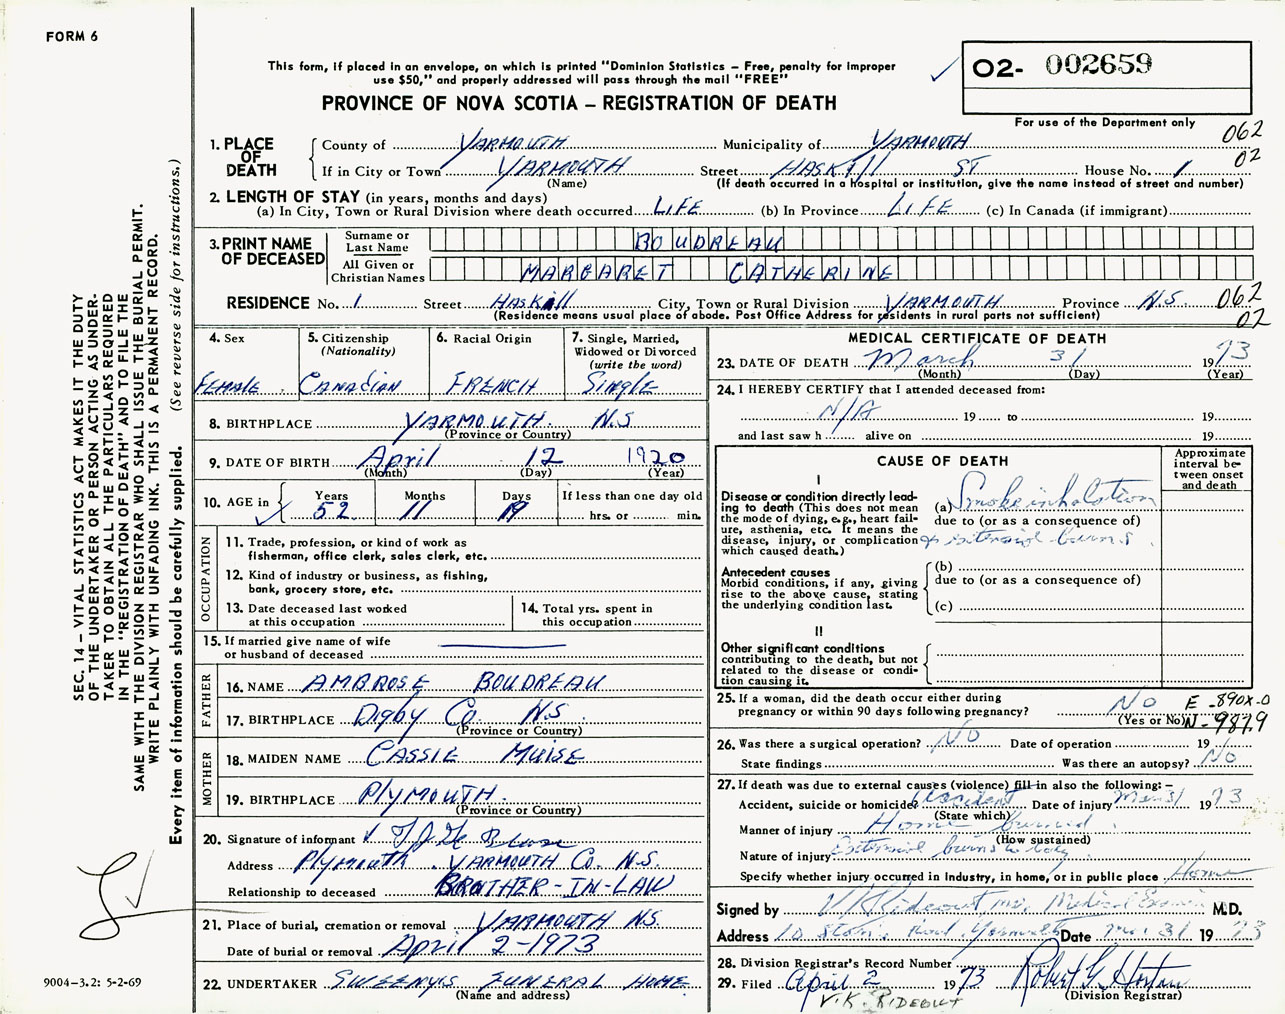 FORM 6
This form, if placed in an envelope, on which is printed "Dominion Statistics – Free, penalty for improper
use $50," and properly addressed will pass through the mail "FREE"
PROVINCE OF NOVA SCOTIA – REGISTRATION OF DEATH
O2- 002659
For use of the Department only
062
02
1. PLACE OF DEATH
County of YARMOUTH Municipality of YARMOUTH
If in City or Town YARMOUTH Street HASKILL ST House No. 1
(Name) (If death occurred in a hospital or institution, give the name instead of street and number)
2. LENGTH OF STAY (in years, months and days)
(a) In City, Town or Rural Division where death occurred LIFE (b) In Province LIFE (c) In Canada (if immigrant)
3. PRINT NAME OF DECEASED
Surname or Last Name BOUDREAU
All Given or Christian Names MARGARET CATHERINE
RESIDENCE No. 1 Street HASKill City, Town or Rural Division YARMOUTH Province N.S. 062
(Residence means usual place of abode. Post Office Address for residents in rural parts not sufficient) 02
4. Sex FEMALE
5. Citizenship (Nationality) CANADIAN
6. Racial Origin FRENCH
7. Single, Married, Widowed or Divorced (write the word) SINGLE
8. BIRTHPLACE YARMOUTH. N.S
(Province or Country)
9. DATE OF BIRTH April 12 1920
(Month) (Day) (Year)
10. AGE in Years 52 Months 11 Days 19 If less than one day old hrs. or min.
OCCUPATION
11. Trade, profession, or kind of work as
fisherman, office clerk, sales clerk, etc.
12. Kind of industry or business, as fishing,
bank, grocery store, etc.
13. Date deceased last worked
at this occupation
14. Total yrs. spent in
this occupation
15. If married give name of wife
or husband of deceased
FATHER
16. NAME AMBROSE BOUDREAU
17. BIRTHPLACE Digby Co. N.S
(Province or Country)
MOTHER
18. MAIDEN NAME CASSIE MUISE
19. BIRTHPLACE PlyMOUTH.
(Province or Country)
20. Signature of informant
Address Plymouth. YARMOUTH Co. N.S.
Relationship to deceased BROTHER-IN-LAW
21. Place of burial, cremation or removal YARMOUTH N.S.
Date of burial or removal April 2-1973
22. UNDERTAKER SWEENYS FUNERAL HOME.
(Name and address)
MEDICAL CERTIFICATE OF DEATH
23. DATE OF DEATH March 31 1973
(Month) (Day) (Year)
24. I HEREBY CERTIFY that I attended deceased from:
N/A 19 to 19
and last saw h alive on 19
CAUSE OF DEATH
Approximate interval between onset and death
I
Disease or condition directly lead-
ing to death (This does not mean
the mode of dying, e.g., heart fail-
ure, asthenia, etc. It means the
disease, injury, or complication
which caused death.)
(a) Smoke inhalation
due to (or as a consequence of)
& external burns.
Antecedent causes
Morbid conditions, if any, giving
rise to the above cause, stating
the underlying condition last.
(b)
due to (or as a consequence of)
(c)
II
Other significant conditions
contributing to the death, but not
related to the disease or condi-
tion causing it.
25. If a woman, did the death occur either during
pregnancy or within 90 days following pregnancy? No
(Yes or No)
E-890X.0
N-9879
26. Was there a surgical operation? No Date of operation 19
State findings Was there an autopsy? No
27. If death was due to external causes (violence) fill in also the following:–
Accident, suicide or homicide? Accident Date of injury Mar 31 1973
(State which)
Manner of injury Home burned.
(How sustained)
Nature of injury External burns to body.
Specify whether injury occurred in industry, in home, or in public place Home
Signed by V K Rideout MD. Medical M.D.
Address Road Yarmouth Date Mar. 31 1973
28. Division Registrar's Record Number
29. Filed April 2 1973 Robert G Horton
(Division Registrar)
V.K. RIDEOUT
SEC. 14 – VITAL STATISTICS ACT MAKES IT THE DUTY
OF THE UNDERTAKER OR PERSON ACTING AS UNDER-
TAKER TO OBTAIN ALL THE PARTICULARS REQUIRED
IN THE "REGISTRATION OF DEATH" AND TO FILE THE
SAME WITH THE DIVISION REGISTRAR WHO SHALL ISSUE THE BURIAL PERMIT.
WRITE PLAINLY WITH UNFADING INK. THIS IS A PERMANENT RECORD.
Every item of information should be carefully supplied. (See reverse side for instructions.)
9004-3.2: 5-2-69